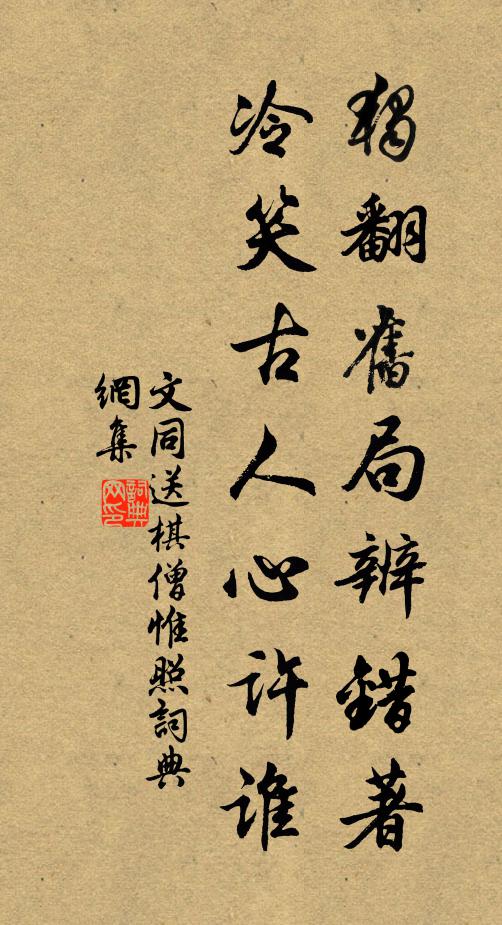 獨翻舊局辨錯著
冷笑古人心許誰
文同送棋僧惟照詞典
網集
詞典網印